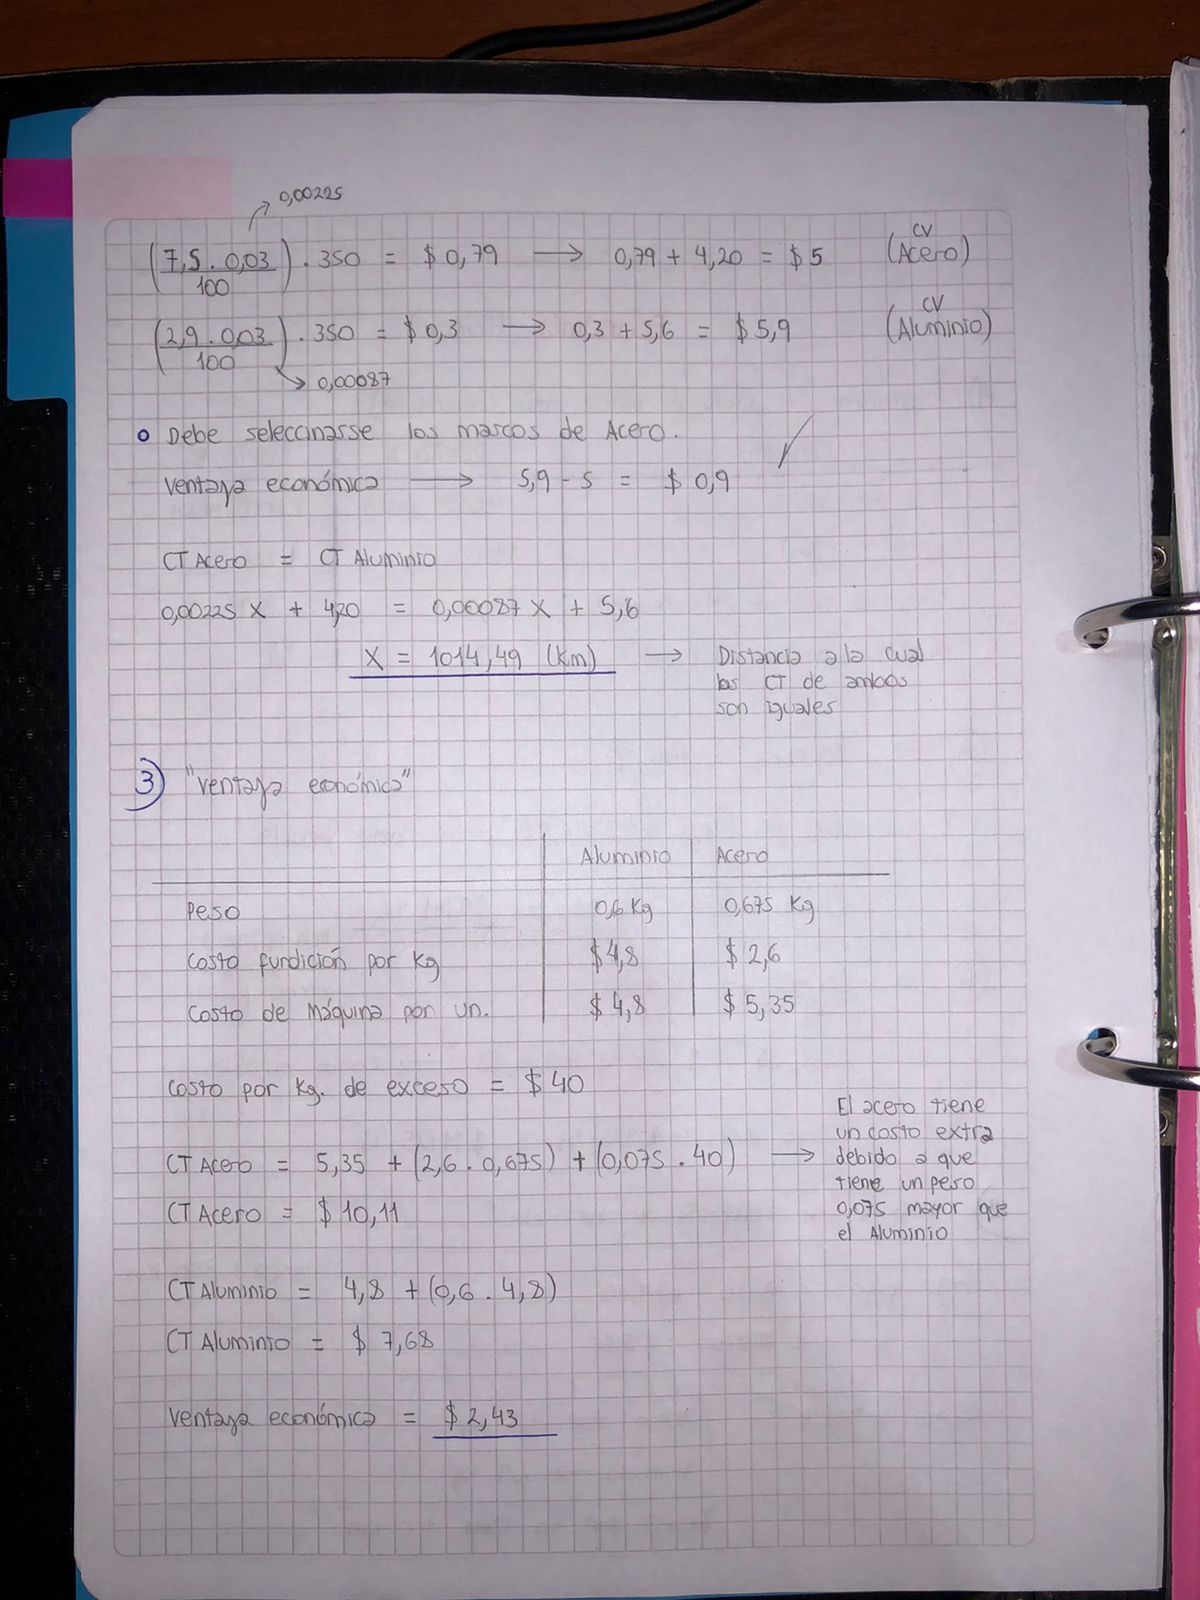 0,00225
(7,5 . 0,03 / 100) . 350 = $ 0,79 → 0,79 + 4,20 = $ 5 CV (Acero)
(2,9 . 0,03 / 100) . 350 = $ 0,3 → 0,3 + 5,6 = $ 5,9 CV (Aluminio)
0,00087
o Debe seleccinarse los marcos de Acero.
Ventaja económica → 5,9 - 5 = $ 0,9
CT Acero = CT Aluminio
0,00225 X + 4,20 = 0,00087 X + 5,6
X = 1014,49 (Km) → Distancia a la cual
los CT de ambos
son iguales
3) "Ventaja económica"
Aluminio Acero
Peso 0,6 Kg 0,675 Kg
Costo fundición por Kg $ 4,8 $ 2,6
Costo de máquina por un. $ 4,8 $ 5,35
Costo por Kg. de exceso = $ 40
CT Acero = 5,35 + (2,6 . 0,675) + (0,075 . 40) →
El acero tiene
un costo extra
debido a que
tiene un peso
0,075 mayor que
el Aluminio
CT Acero = $ 10,11
CT Aluminio = 4,8 + (0,6 . 4,8)
CT Aluminio = $ 7,68
Ventaja económica = $ 2,43